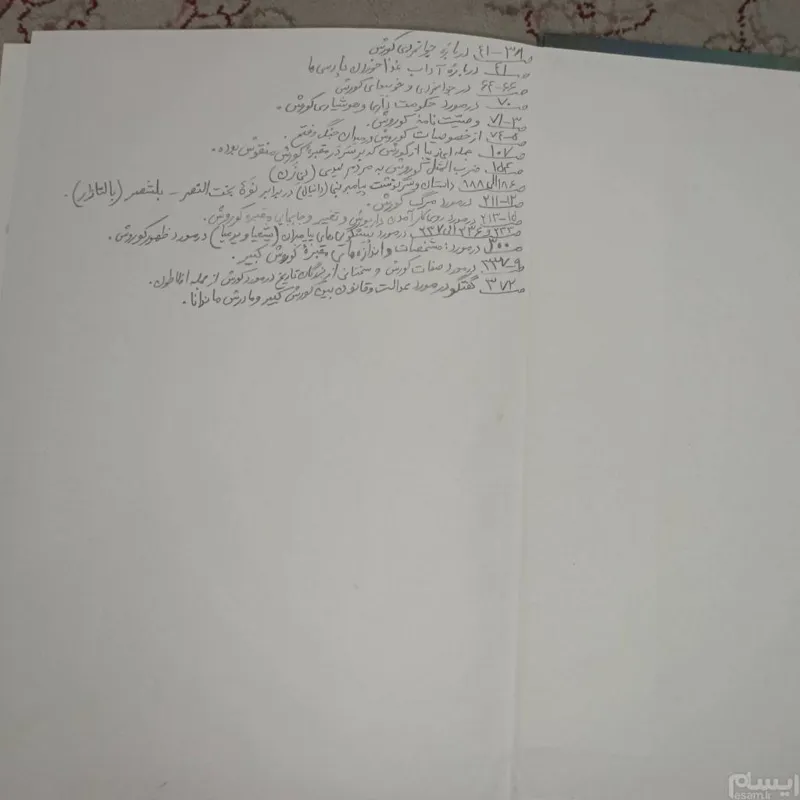 ص ۳۸-۴۱ درباره جوانمردی کورش
ص ۴۱ درباره آداب غذا خوردن پارسی ها
ص ۶۶-۶۴ در جوانمردی و خوبیهای کورش
ص ۷۰ در مورد حکومت داری و هوشیاری کورش.
ص ۳-۷۱ وصیت نامه کوروش.
ص ۵-۷۴ از خصوصیات کوروش و میدان جنگ رفتن.
ص ۱۰۷ جمله ای از کورش که بر سر در مقبره کورش منقوش بوده.
ص ۱۵۴ ضرب المثل کوروش به مردم
ص ۱۸۶ الی ۱۸۸ داستان و سرگذشت پیامبر نبیا (دانیال) در برابر نوه بخت النصر - بلشصر (بالتازار).
ص ۱۲-۲۱۱ در مورد مرگ کورش.
ص ۱۵-۲۱۳ در مورد روی کار آمدن داریوش و تغییر و جابجایی مقبره کوروش.
ص ۲۳۳ و ۲۳۶ الی ۲۳۷ در مورد پیشگویی های پیامبران (یشعیا و یرمیا) در مورد ظهور کوروش.
ص ۳۰۰ در مورد: مشخصات و اندازه های مقبره کوروش کبیر.
ص ۹-۳۳۷ در مورد صفات کورش و سخنانی از بزرگان تاریخ در مورد کورش از جمله افلاطون.
ص ۳۷۲ گفتگو در مورد عدالت و قانون بین کورش کبیر و مادرش ماندانا.
ایسام
esam.ir